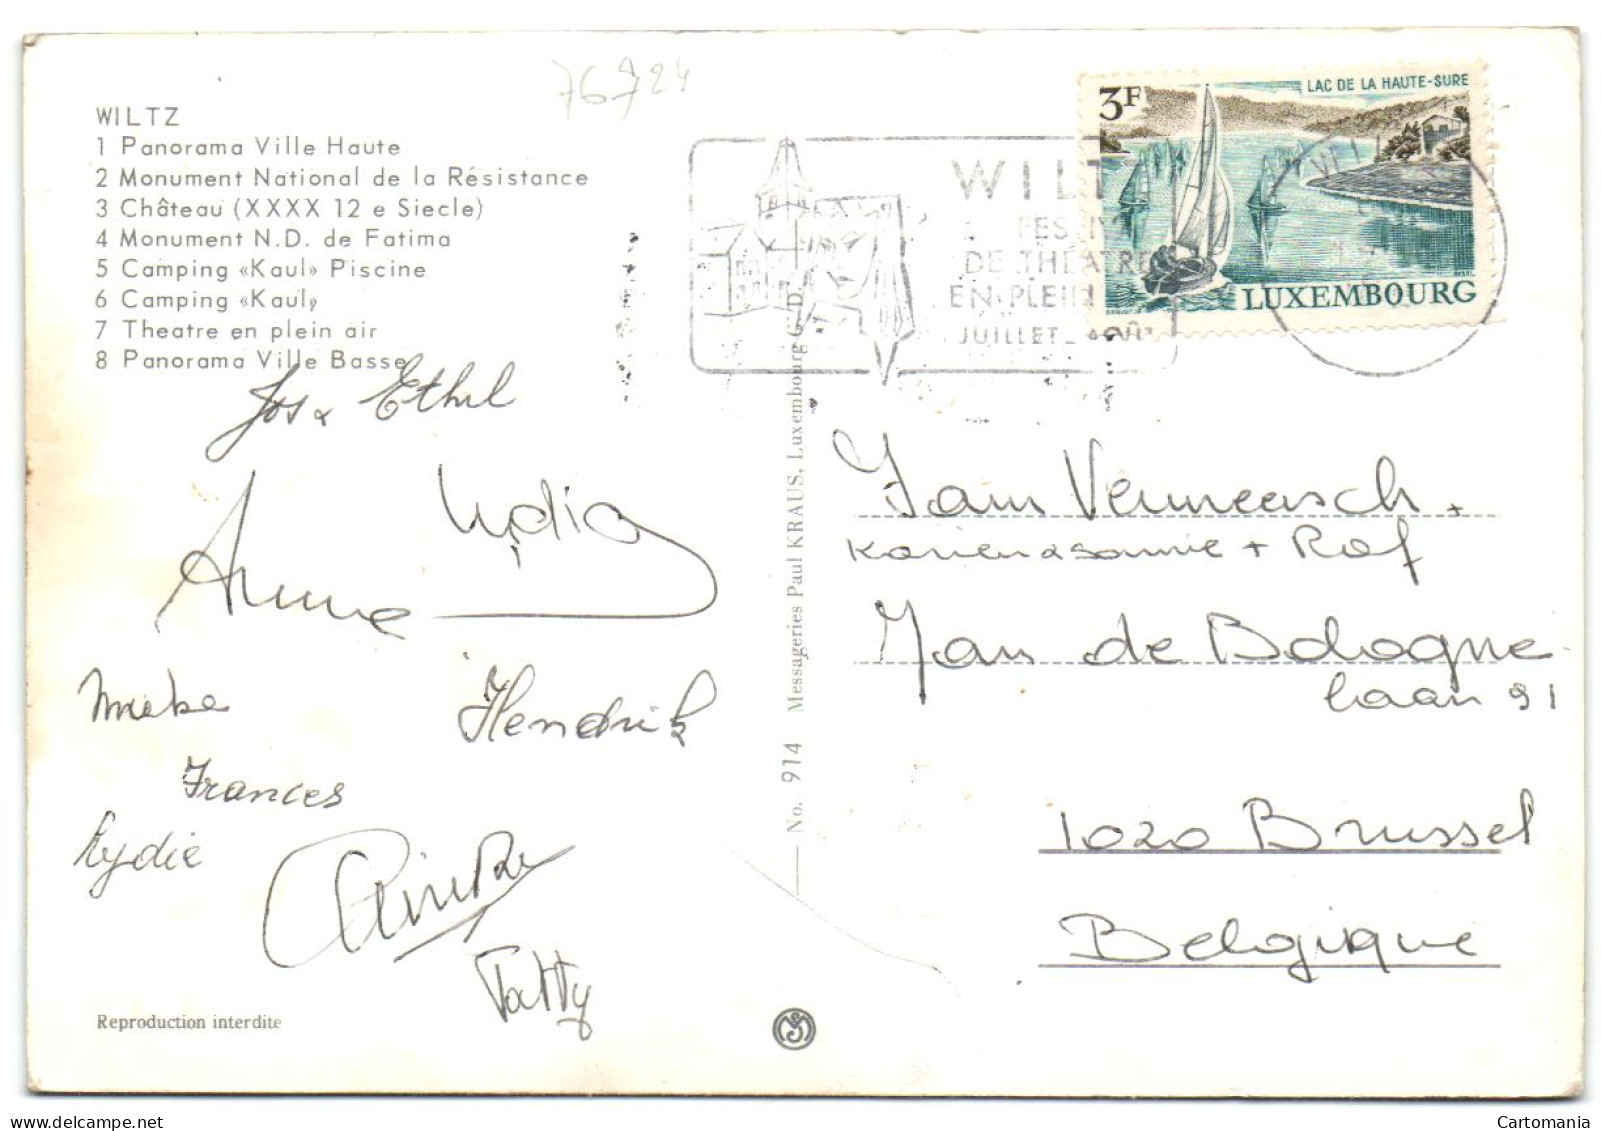 76724
WILTZ
1 Panorama Ville Haute
2 Monument National de la Résistance
3 Château (XXXX 12 e Siecle)
4 Monument N.D. de Fatima
5 Camping «Kaul» Piscine
6 Camping «Kaul»
7 Theatre en plein air
8 Panorama Ville Basse
Jos & Ethel
Lydia
Anne
Mieke
Hendrik
Frances
Lydie
Patty
Reproduction interdite
No. 914 Messageries Paul KRAUS, Luxembourg G.D.
WILT
FESTIV
DE THEATRE
EN PLEIN
JUILLET_AOÛT
3F
LAC DE LA HAUTE-SURE
LUXEMBOURG
Fam Vermeersch +
Karien & Sannie + Raf
Jan de Bologne
laan 91
1020 Brussel
Belgique
Cartomania